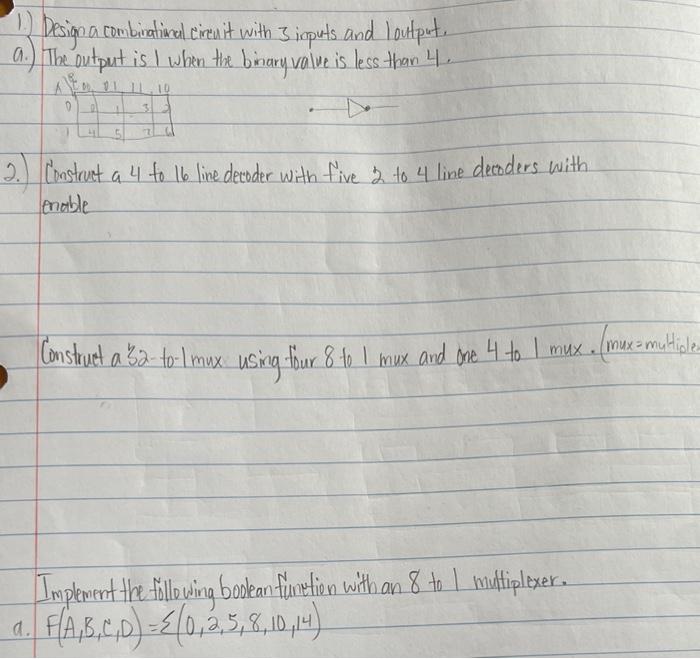 1.) Design a combinational circuit with 3 inputs and 1 output.
a.) The output is 1 when the binary value is less than 4.
A 00 01 11 10
0 0 1 3 2
1 4 5 7 6
2.) Construct a 4 to 16 line decoder with five 2 to 4 line decoders with
enable
Construct a 32-to-1 mux using four 8 to 1 mux and one 4 to 1 mux. (mux=multiple
Implement the following boolean function with an 8 to 1 multiplexer.
a. F(A,B,C,D)=Σ(0,2,5,8,10,14)